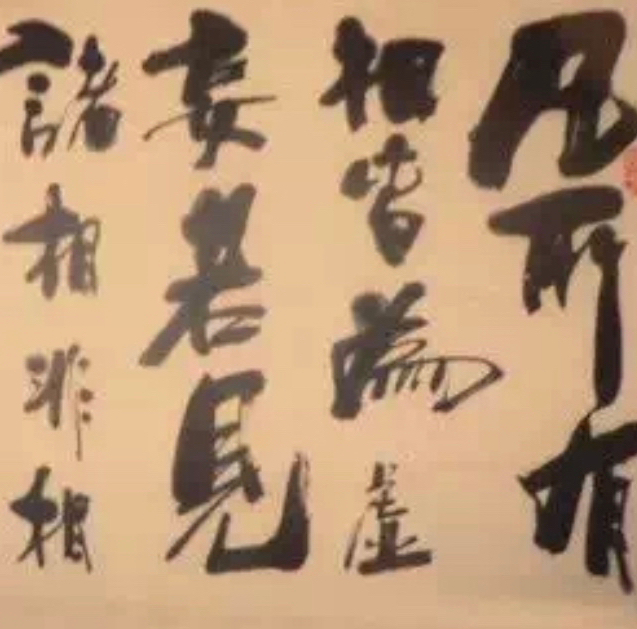 凡所有
相皆為虛
妄若見
諸相非相